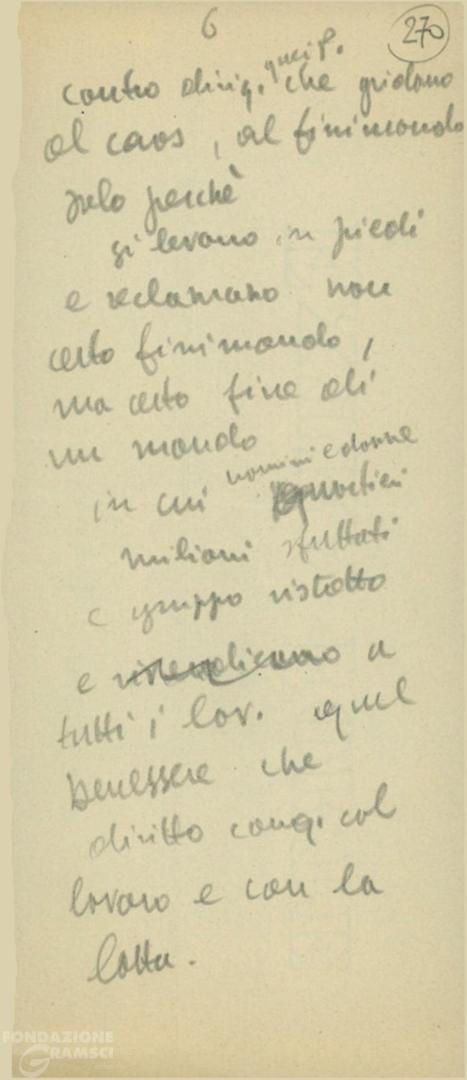 6
270
quei p.
contro dirig. che gridano
al caos, al finimondo
solo perchè
si levano in piedi
e reclamano non
certo finimondo,
ma certo fine di
un mondo
in cui uomini e donne
milioni sfruttati
gruppo ristretto
e rivendicano a
tutti i lav. quel
benessere che
diritto conq. col
lavoro e con la
lotta.
FONDAZIONE
GRAMSCI